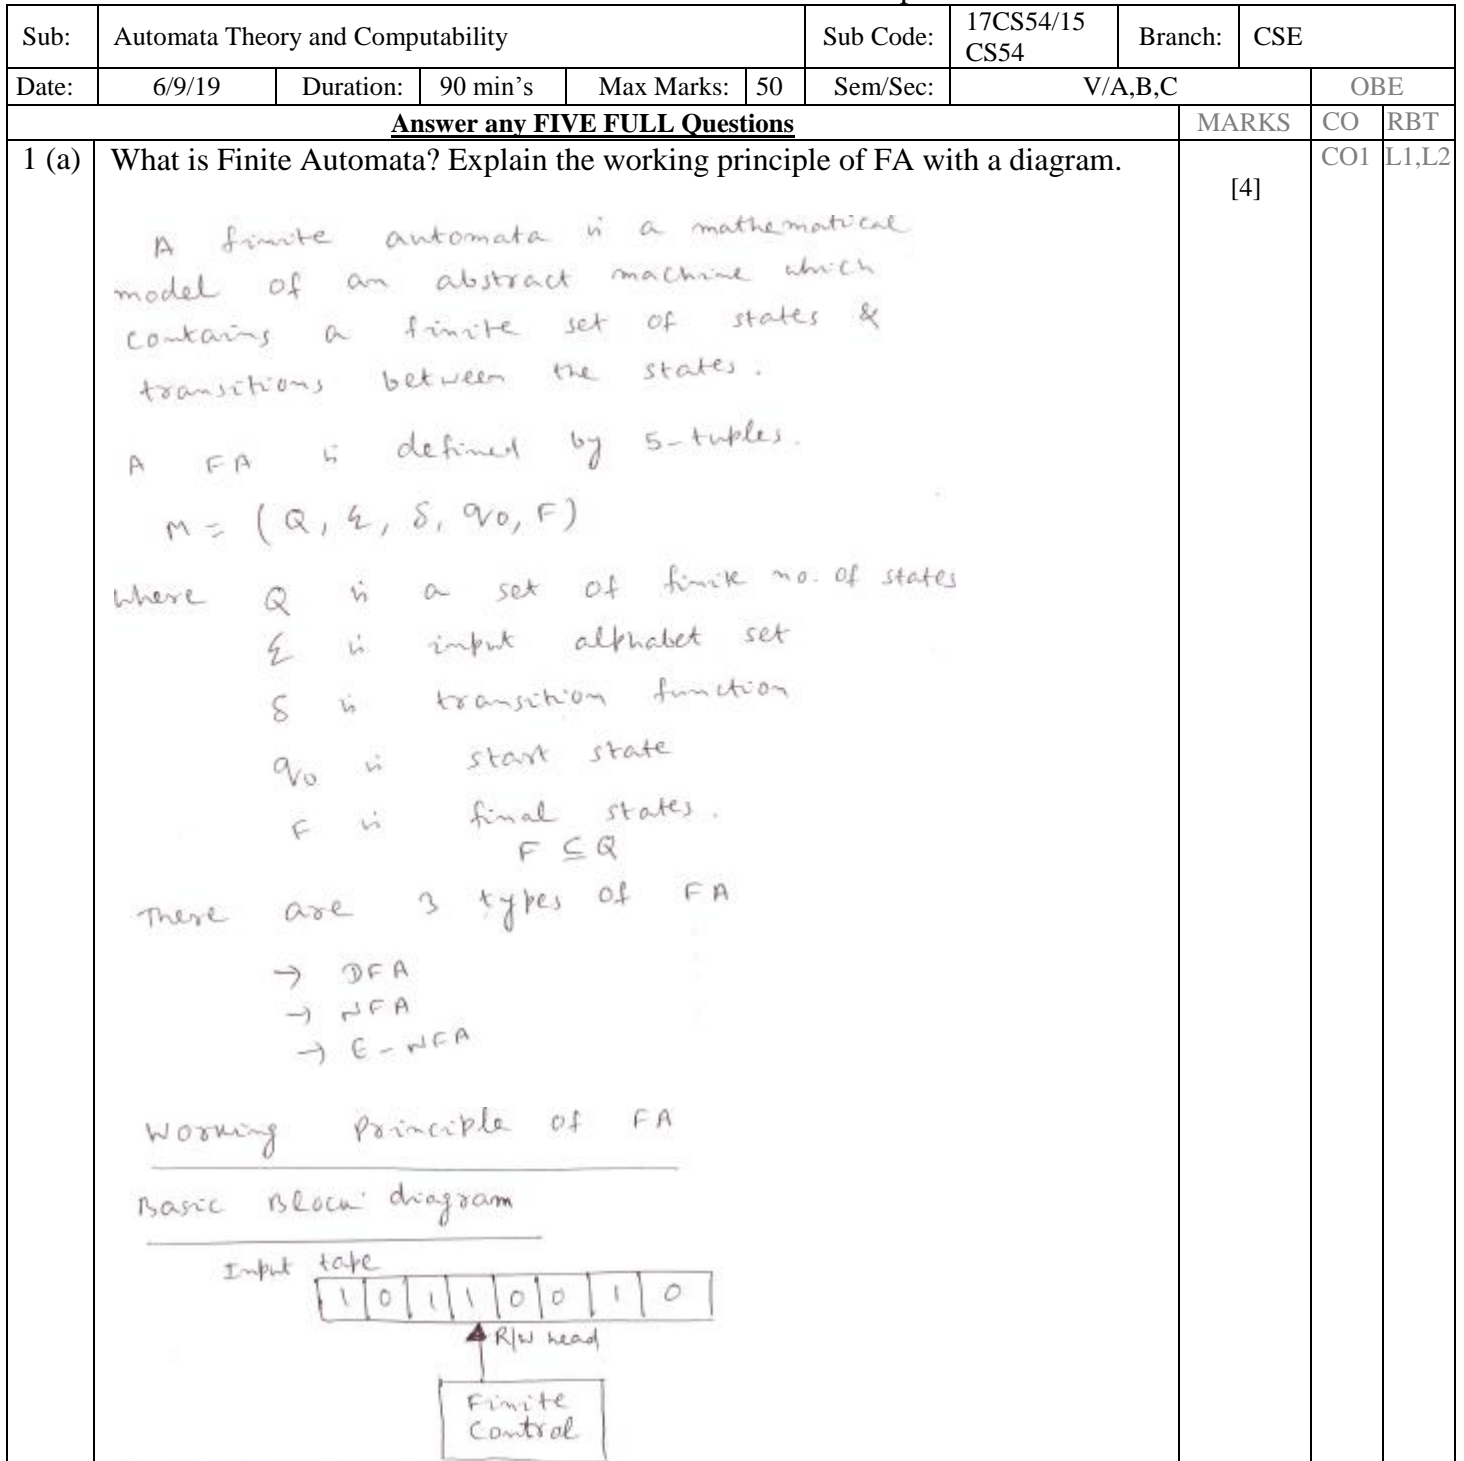 Sub: Automata Theory and Computability Sub Code: 17CS54/15 CS54 Branch: CSE
Date: 6/9/19 Duration: 90 min's Max Marks: 50 Sem/Sec: V/A,B,C OBE
Answer any FIVE FULL Questions MARKS CO RBT
1 (a) What is Finite Automata? Explain the working principle of FA with a diagram. [4] CO1 L1,L2
A finite automata is a mathematical
model of an abstract machine which
contains a finite set of states &
transitions between the states.
A FA is defined by 5-tuples.
M = (Q, Σ, δ, q0, F)
where Q is a set of finite no. of states
Σ is input alphabet set
δ is transition function
q0 is start state
F is final states.
F ⊆ Q
There are 3 types of FA
→ DFA
→ NFA
→ ε-NFA
Working Principle of FA
Basic Block diagram
Input tape
1 0 1 1 0 0 1 0
R/W head
Finite
Control